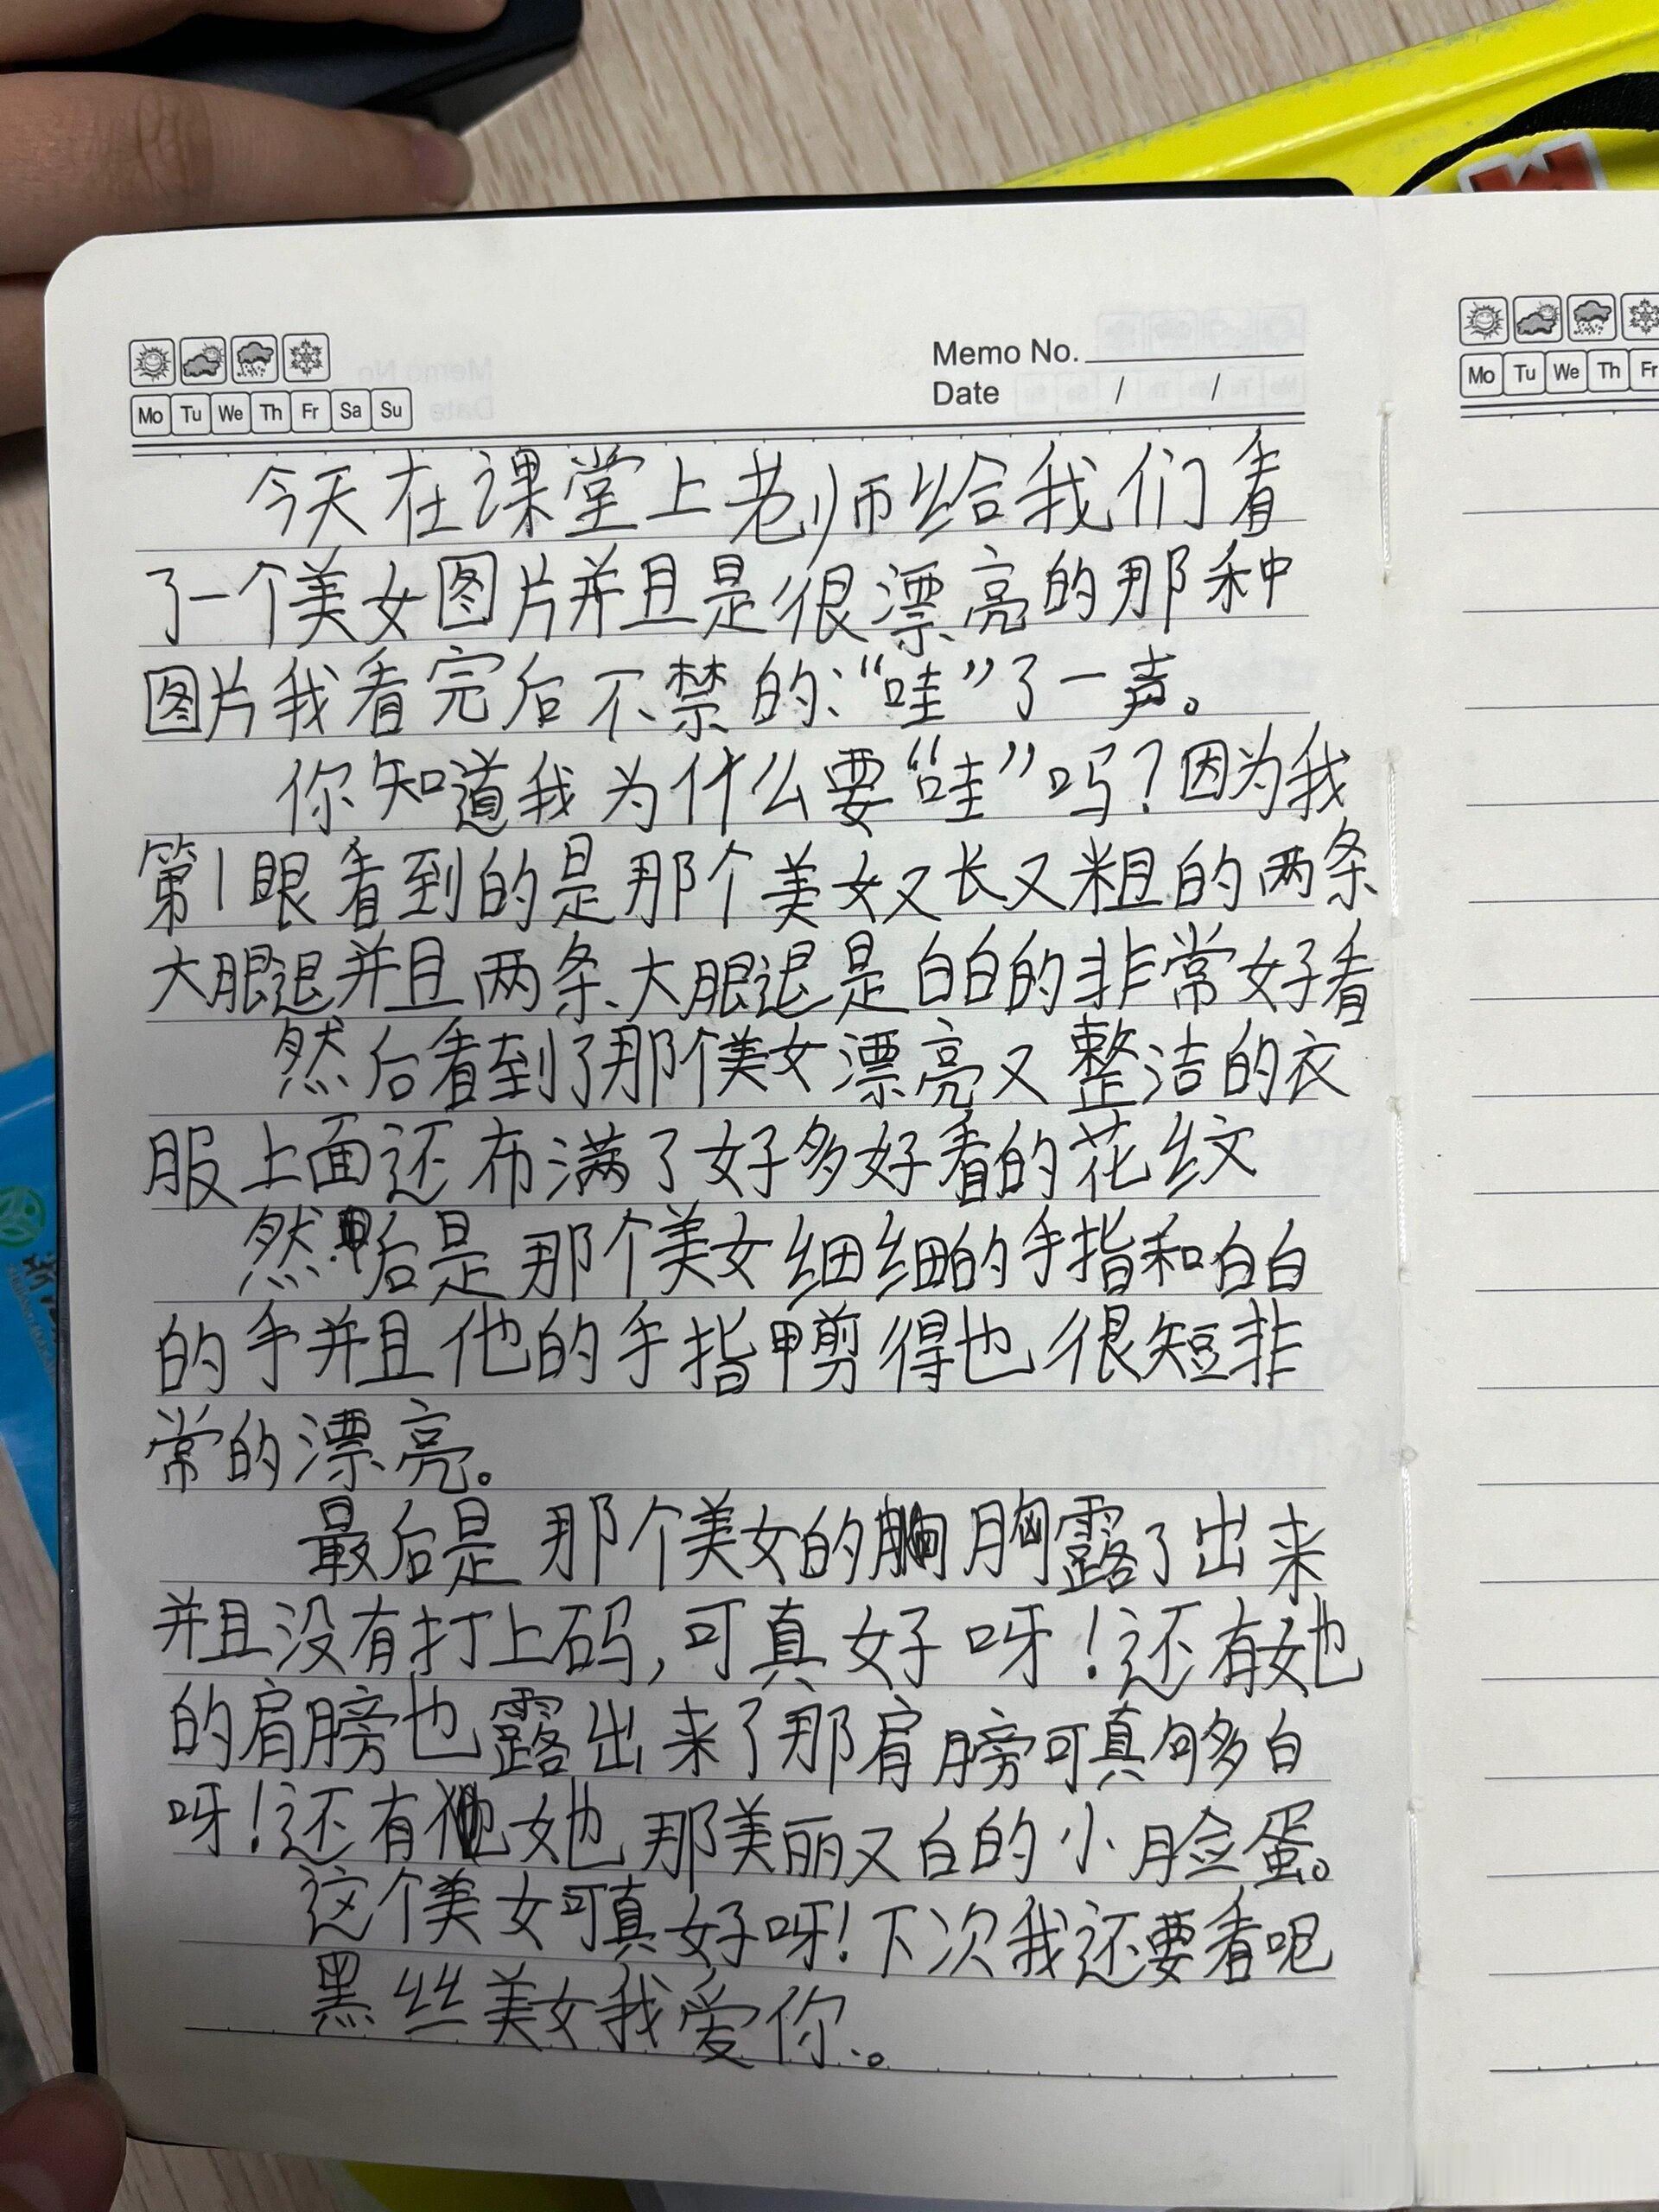 Memo No.
Date / /
Mo Tu We Th Fr Sa Su
Mo Tu We Th Fr
今天在课堂上老师给我们看
了一个美女图片并且是很漂亮的那种
图片我看完后不禁的:“哇”了一声。
你知道我为什么要“哇”吗?因为我
第1眼看到的是那个美女又长又粗的两条
大腿退并且两条大腿退是白白的非常好看
然后看到了那个美女漂亮又整洁的衣
服上面还布满了好多好看的花纹
然后是那个美女细细的手指和白白
的手并且他的手指甲剪得也很短非
常的漂亮。
最后是那个美女的胸露了出来
并且没有打上码,可真好呀!还有她
的肩膀也露出来了那肩膀可真够白
呀!还有她那美丽又白的小脸蛋。
这个美女可真好呀!下次我还要看吧
黑丝美女我爱你。